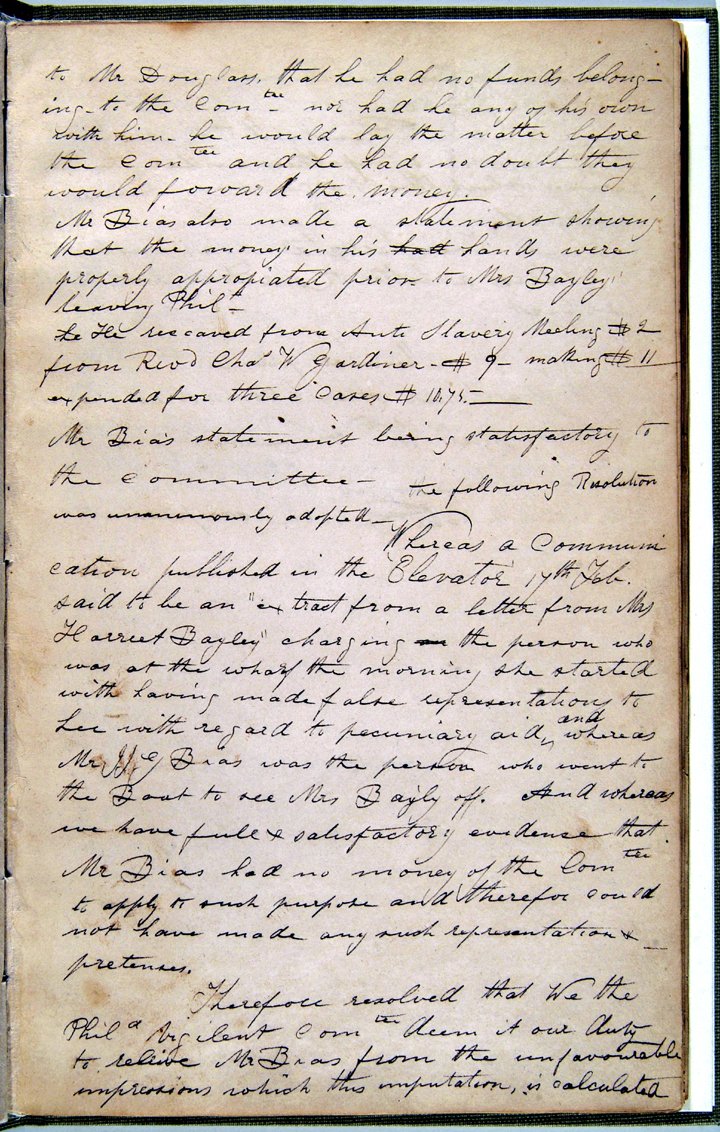 to Mr Douglass. that he had no funds belong-
ing - to the Com tee - nor had he any of his own
with him - he would lay the matter before
the Com tee and he had no doubt they
would forward the money.
Mr Bias also made a statement showing
that the money in his hands were
properly appropiated prior to Mrs Bayley
leaving Phila -
He rescaved from Anti Slavery Meeting $ 2
from Revd Chas W Gardiner - $ 9 - making $ 11
expended for three Cases $ 10,75. -
Mr Bias statement being statisfactory to
the Committee - the following Resolution
was unanimously adopted -
Whereas a Communi
cation published in the "Elevator" 17th Feb.
said to be an "extract from a letter from Mrs
Harriet Bayley" charging the person who
was at the wharf the morning she started
with having made false representations to
her with regard to pecuniary aid, and whereas
Mr G Bias was the person who went to
the Boat to see Mrs Bayly off. And whereas
we have full & satisfactory evidence that
Mr Bias had no money of the Com tee
to apply to such purpose and therefor could
not have made any such representation &
pretenses.
Therefore resolved that We the
Phila Vigilent Com tee deem it our duty
to releive Mr Bias from the unfavourable
impressions which this imputation, is calculated